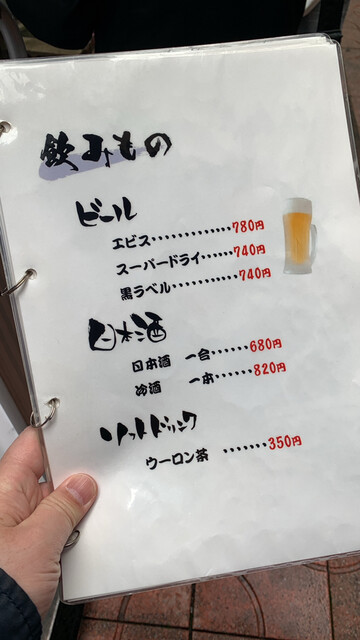 飲みもの
ビール
エビス・・・・・・・・・・・・・780円
スーパードライ・・・・・・740円
黒ラベル・・・・・・・・・・・740円
日本酒
日本酒 一合・・・・・・680円
冷酒 一本・・・・・・820円
ソフトドリンク
ウーロン茶 ・・・・・・・350円